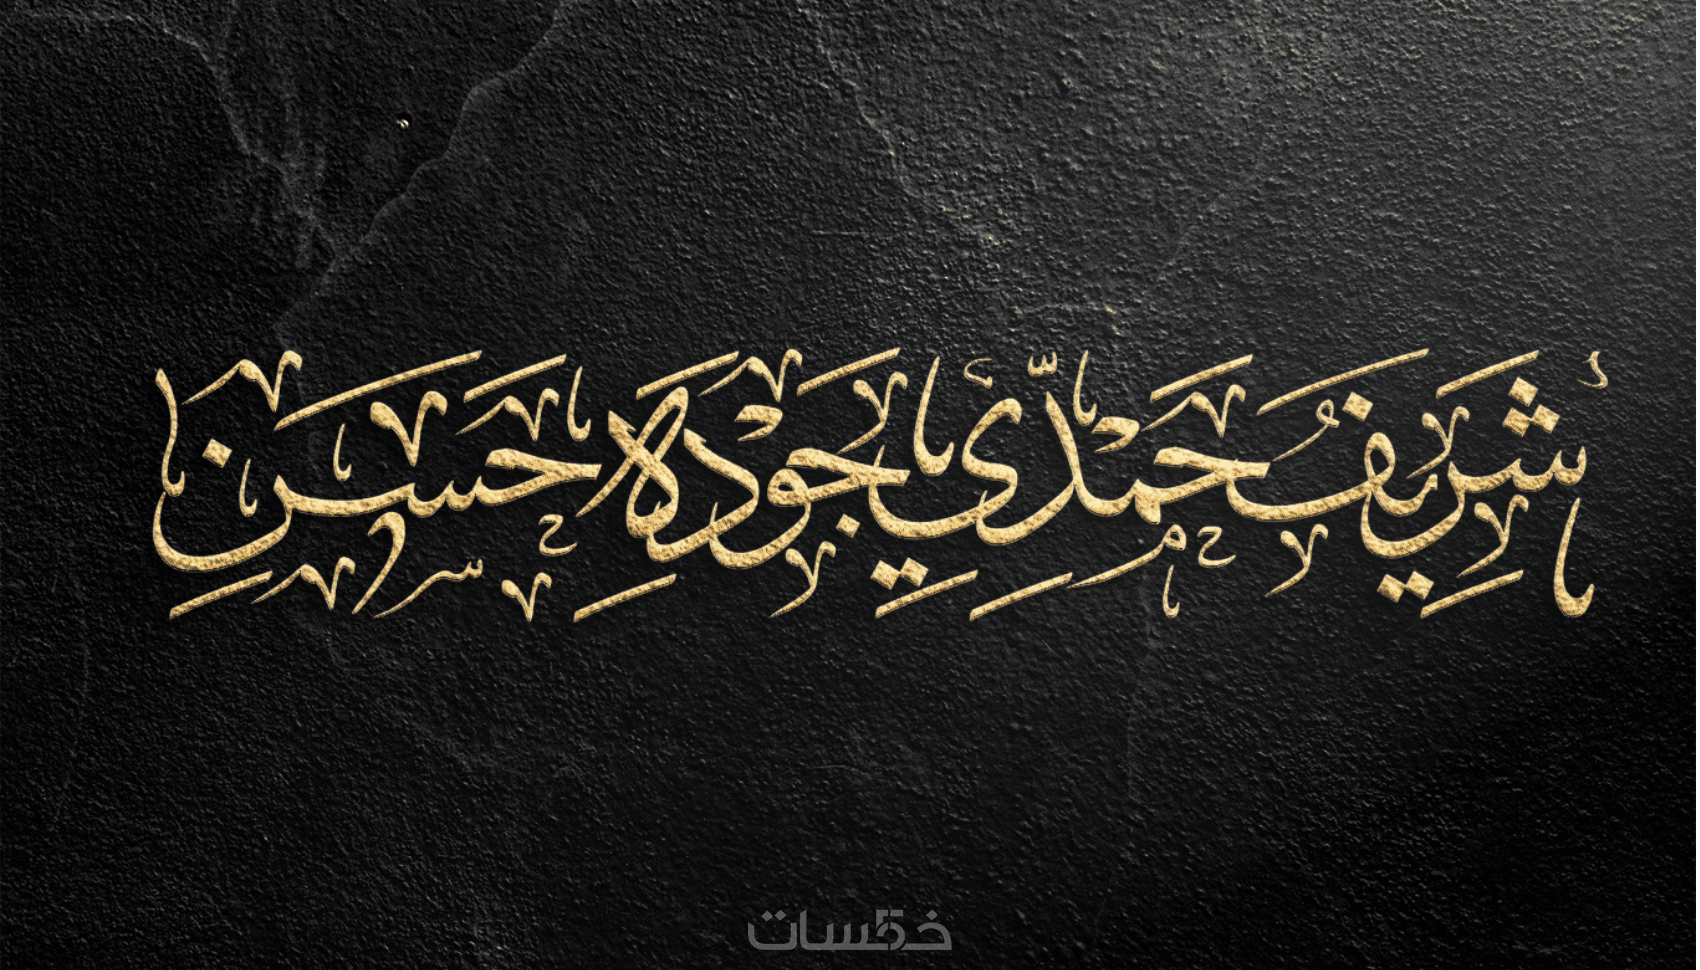 شريف حمدي جوده حسن
خمسات